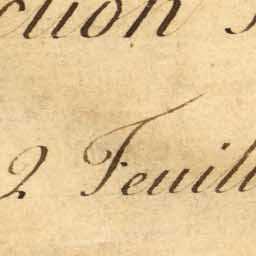 ction
2 Feuill